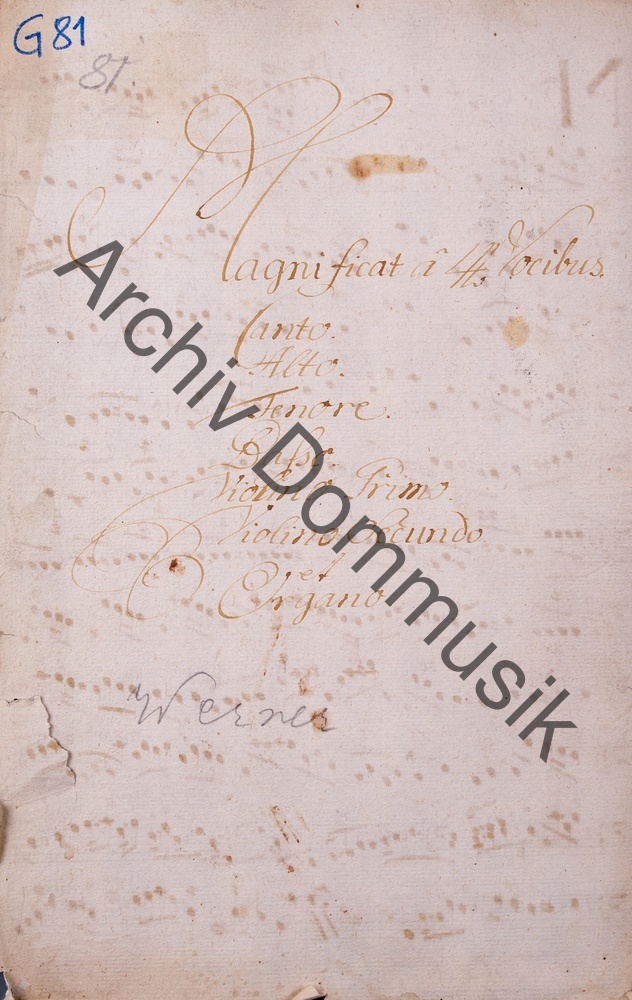 G 81
81.
Magnificat â 4 Vocibus.
Canto.
Alto.
Tenore.
Basso.
Violino Primo.
Violino Secundo
et
Organo
Werner
Archiv Dommusik